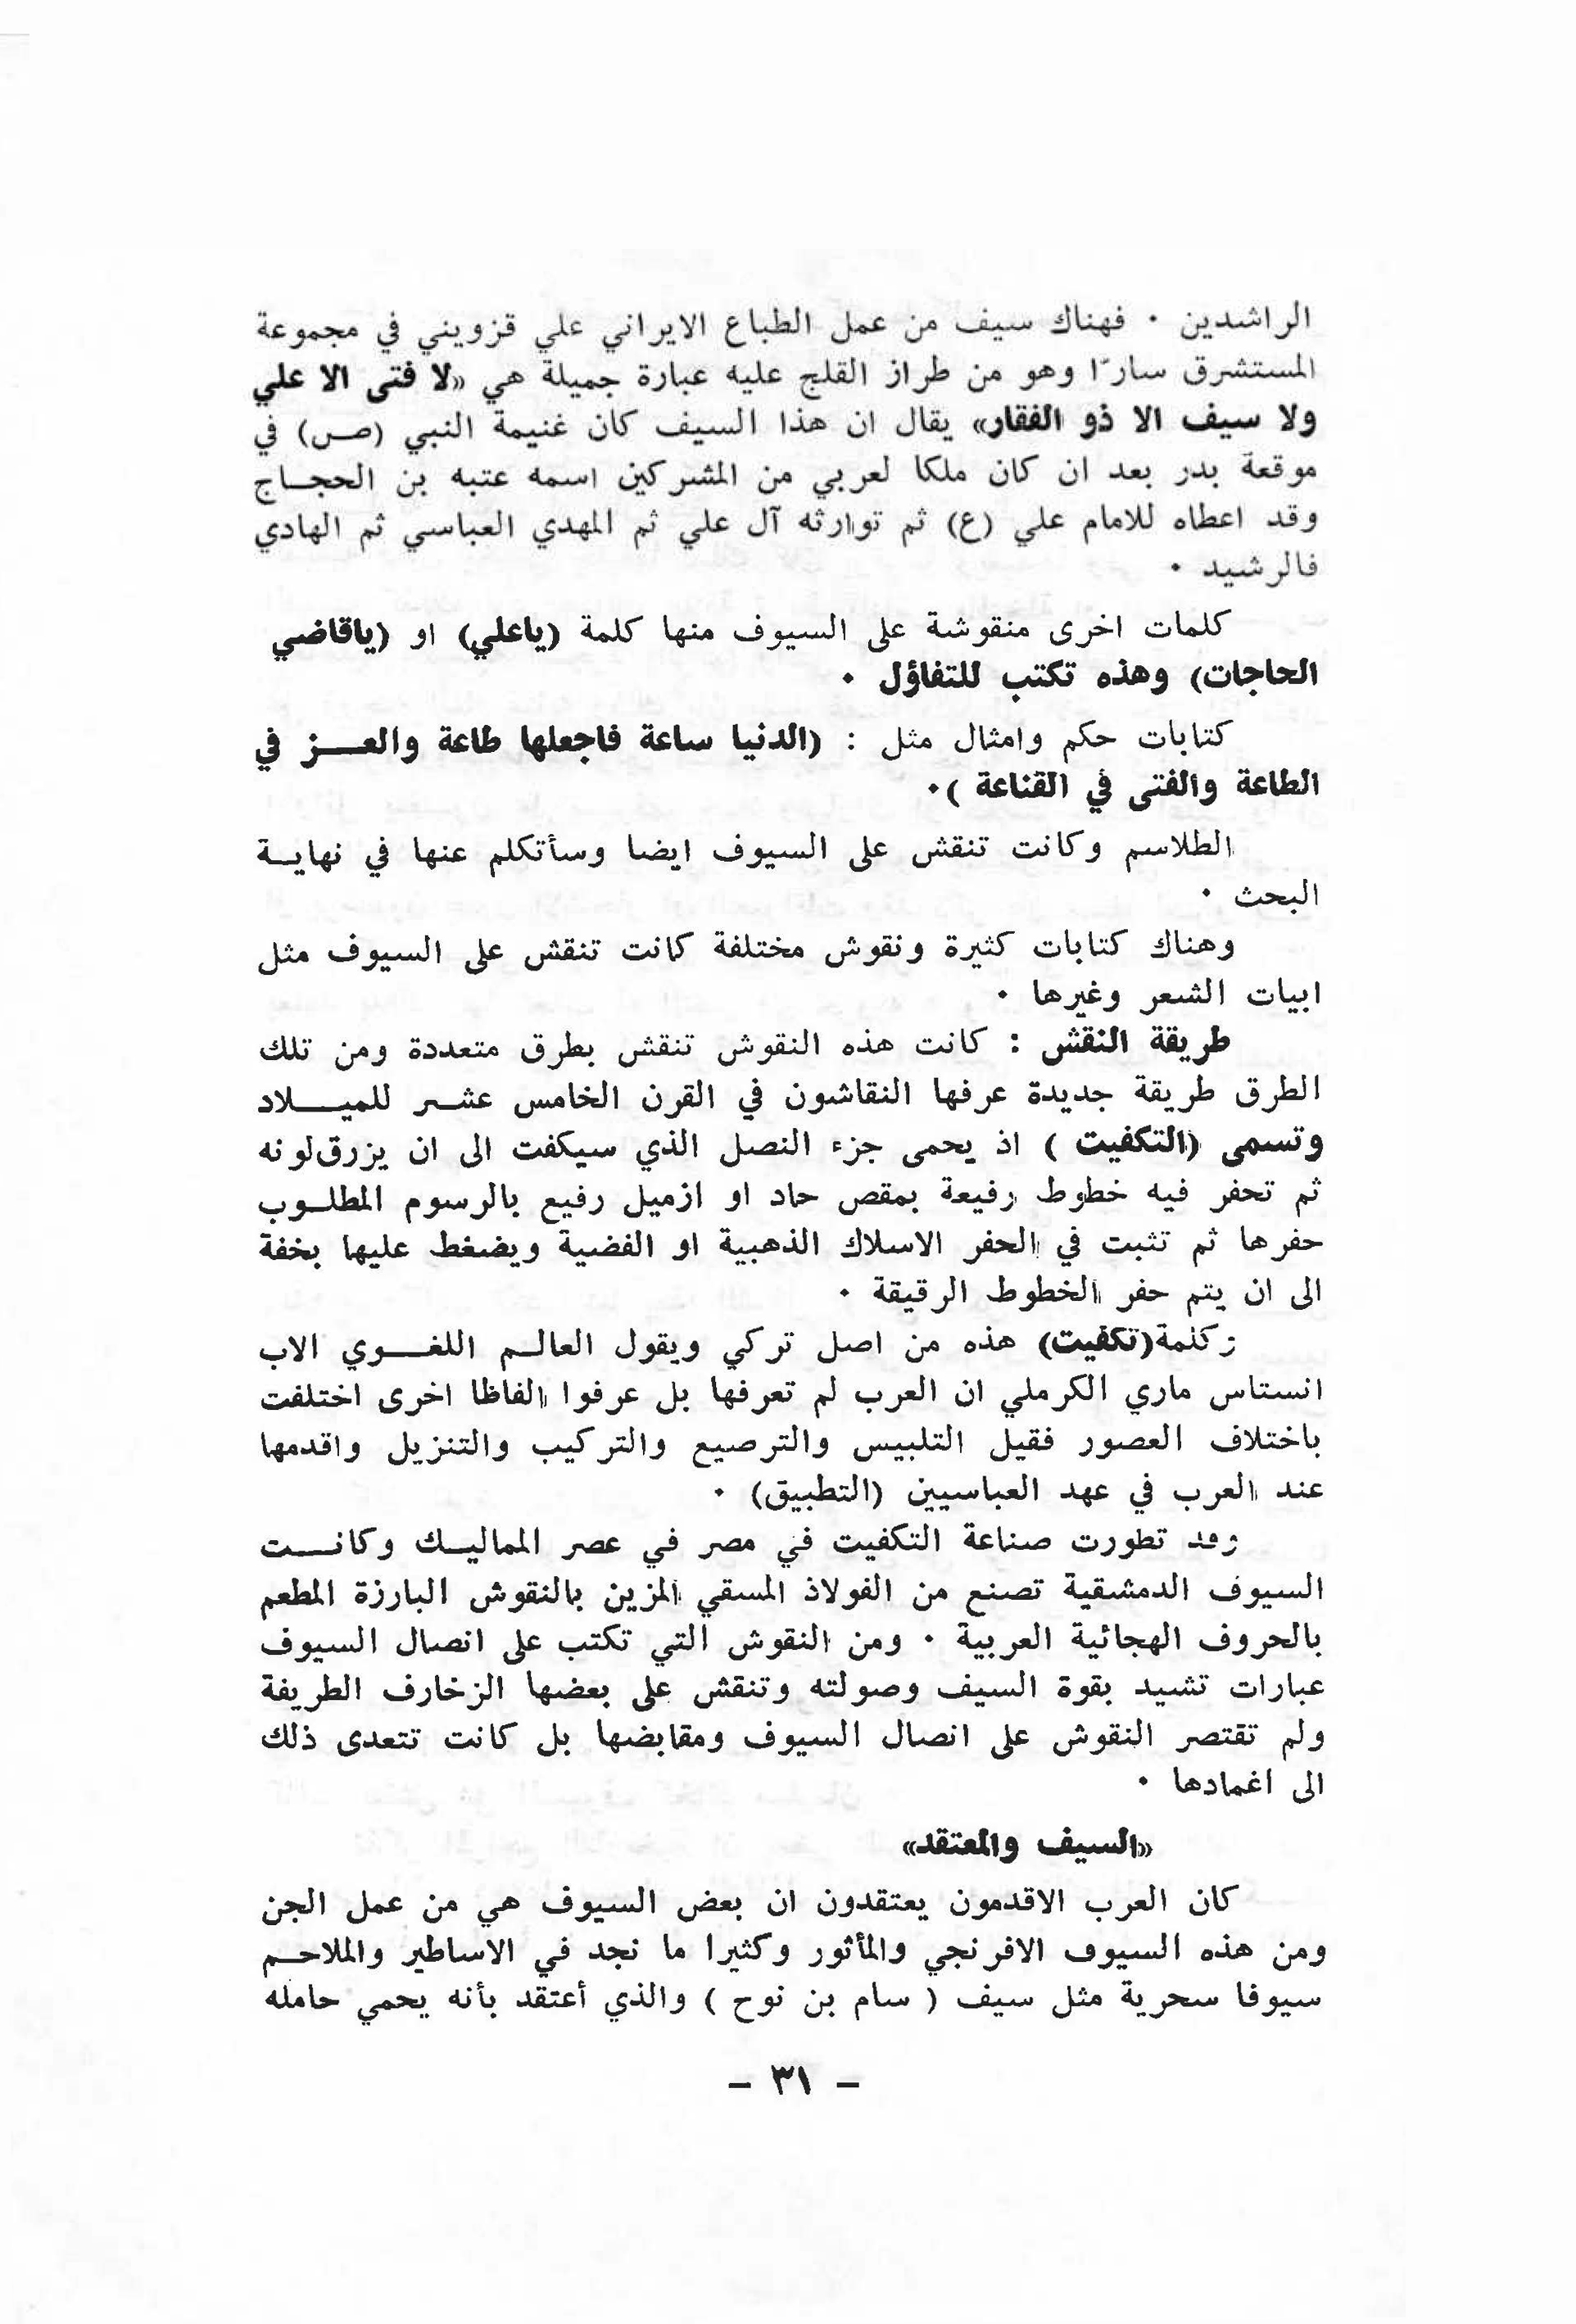 الراشدين ٠ فهناك سيف من عمل الطباع الايراني علي قزويني في مجموعة
المستشرق سارّا وهو من طراز القلج عليه عبارة جميلة هي «لا فتى الا علي
ولا سيف الا ذو الفقار» يقال ان هذا السيف كان غنيمة النبي (ص) في
موقعة بدر بعد ان كان ملكا لعربي من المشركين اسمه عتبه بن الحجاج
وقد اعطاه للامام علي (ع) ثم توارثه آل علي ثم المهدي العباسي ثم الهادي
فالرشيد ٠
كلمات اخرى منقوشة على السيوف منها كلمة (ياعلي) او (ياقاضي
الحاجات) وهذه تكتب للتفاؤل ٠
كتابات حكم وامثال مثل : (الدنيا ساعة فاجعلها طاعة والعز في
الطاعة والفتى في القناعة )٠
الطلاسم وكانت تنقش على السيوف ايضا وسأتكلم عنها في نهاية
البحث ٠
وهناك كتابات كثيرة ونقوش مختلفة كانت تنقش على السيوف مثل
ابيات الشعر وغيرها ٠
طريقة النقش : كانت هذه النقوش تنقش بطرق متعددة ومن تلك
الطرق طريقة جديدة عرفها النقاشون في القرن الخامس عشر للميلاد
وتسمى (التكفيت ) اذ يحمى جزء النصل الذي سيكفت الى ان يزرق لونه
ثم تحفر فيه خطوط رفيعة بمقص حاد او ازميل رفيع بالرسوم المطلوب
حفرها ثم تثبت في الحفر الاسلاك الذهبية او الفضية ويضغط عليها بخفة
الى ان يتم حفر الخطوط الرقيقة ٠
وكلمة(تكفيت) هذه من اصل تركي ويقول العالم اللغوي الاب
انستاس ماري الكرملي ان العرب لم تعرفها بل عرفوا الفاظا اخرى اختلفت
باختلاف العصور فقيل التلبيس والترصيع والتركيب والتنزيل واقدمها
عند العرب في عهد العباسيين (التطبيق) ٠
وقد تطورت صناعة التكفيت في مصر في عصر المماليك وكانت
السيوف الدمشقية تصنع من الفولاذ المسقي المزين بالنقوش البارزة المطعم
بالحروف الهجائية العربية ٠ ومن النقوش التي تكتب على انصال السيوف
عبارات تشيد بقوة السيف وصولته وتنقش على بعضها الزخارف الطريفة
ولم تقتصر النقوش على انصال السيوف ومقابضها بل كانت تتعدى ذلك
الى اغمادها ٠
«السيف والمعتقد»
كان العرب الاقدمون يعتقدون ان بعض السيوف هي من عمل الجن
ومن هذه السيوف الافرنجي والمأثور وكثيرا ما نجد في الاساطير والملاحم
سيوفا سحرية مثل سيف ( سام بن نوح ) والذي أعتقد بأنه يحمي حامله
– ٣١ –